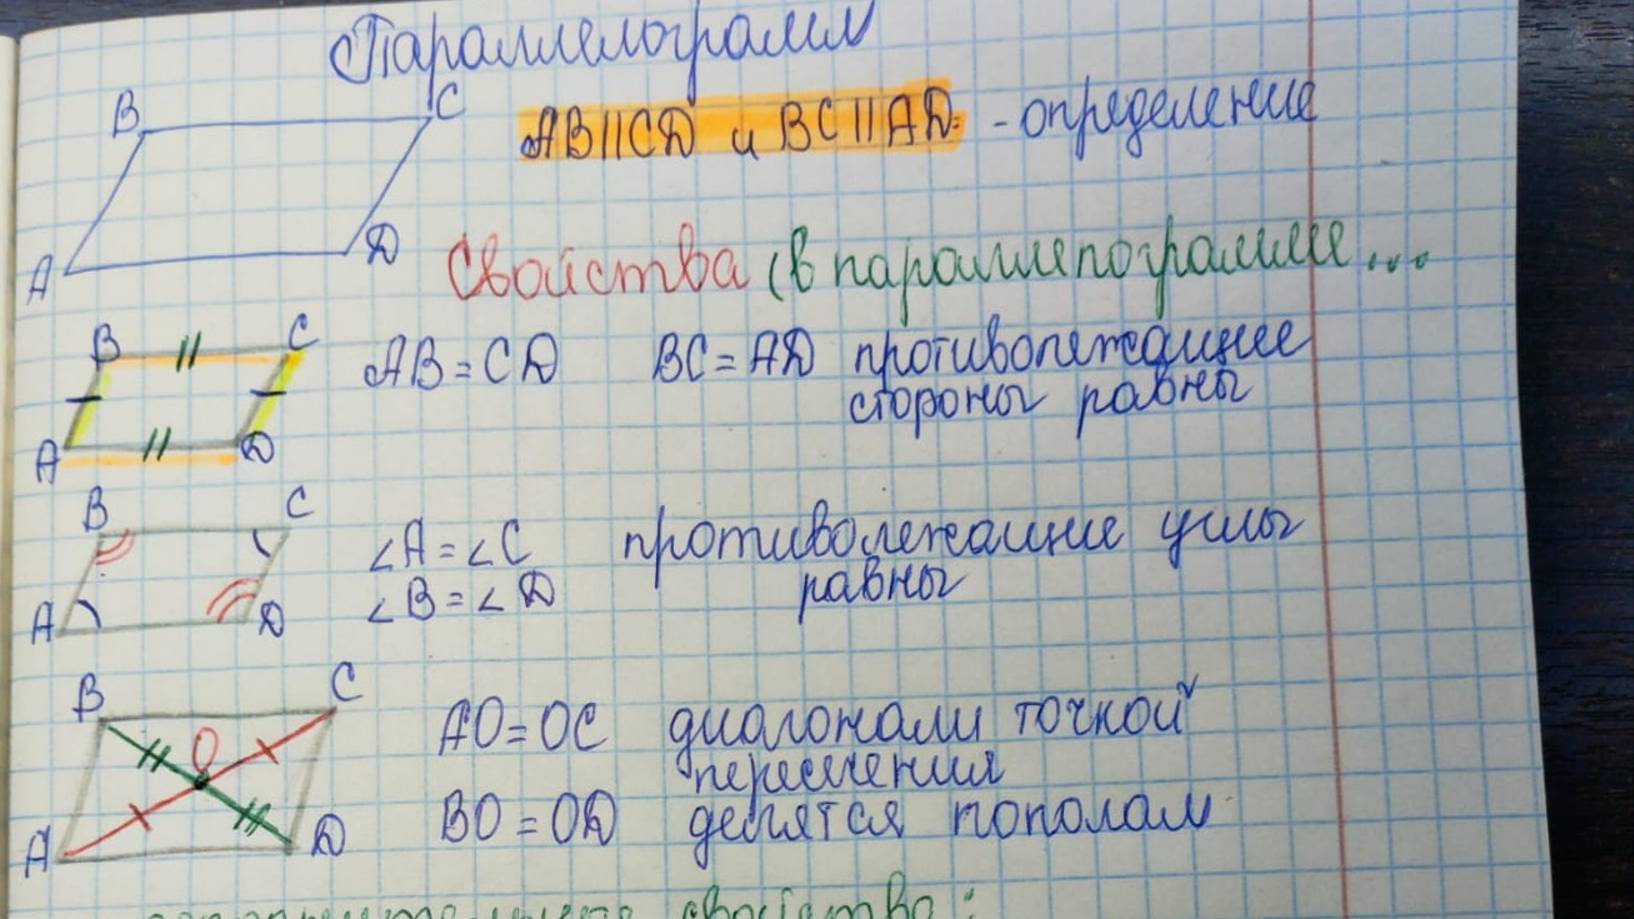 Параллелограмм
B C
AB||CD и BC||AD - определение
A D
Свойства (в параллелограмме...
B C
AB=CD BC=AD противолежащие
стороны равны
A D
B C
∠A=∠C противолежащие углы
∠B=∠D равны
A D
B C
O
AO=OC диагонали точкой
пересечения
BO=OD делятся пополам
A D
свойства: